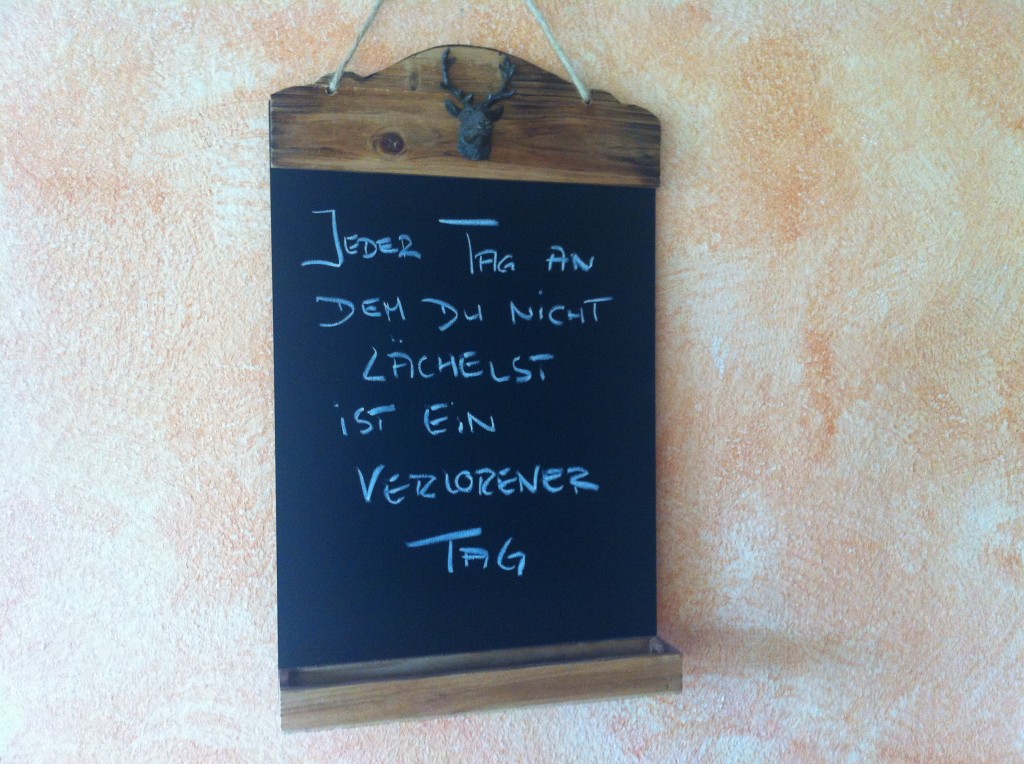 JEDER TAG AN
DEM DU NICHT
LÄCHELST
iST EiN
VERLORENER
TAG